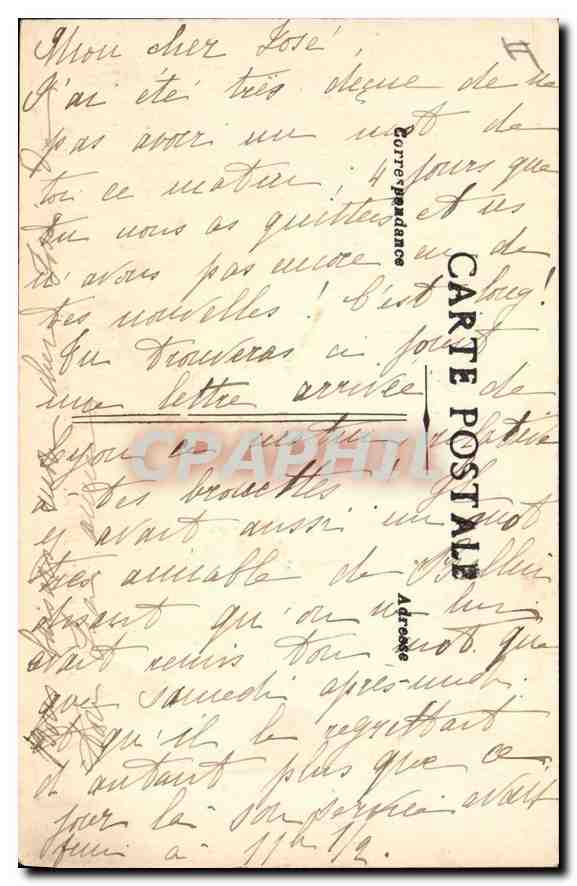 II
Mon cher José,
J'ai été très deçue de ne
pas avoir un mot de
toi ce matin, 4 jours que
tu nous as quittés et ns
n'avons pas encore eu de
tes nouvelles ! C'est long !
Tu trouveras ci joint
une lettre arrivée de
Seyon ce matin relative
à tes brouettes ! Il
y avait aussi un mot
très aimable de
disant qu'on ne lui
avait remis ton mot que
que samedi après-midi.
et qu'il le regrettait
d'autant plus que ce
jour là son service avait
fini à 11h 1/2.
Correspondance
CARTE POSTALE
Adresse
CPAPHIL